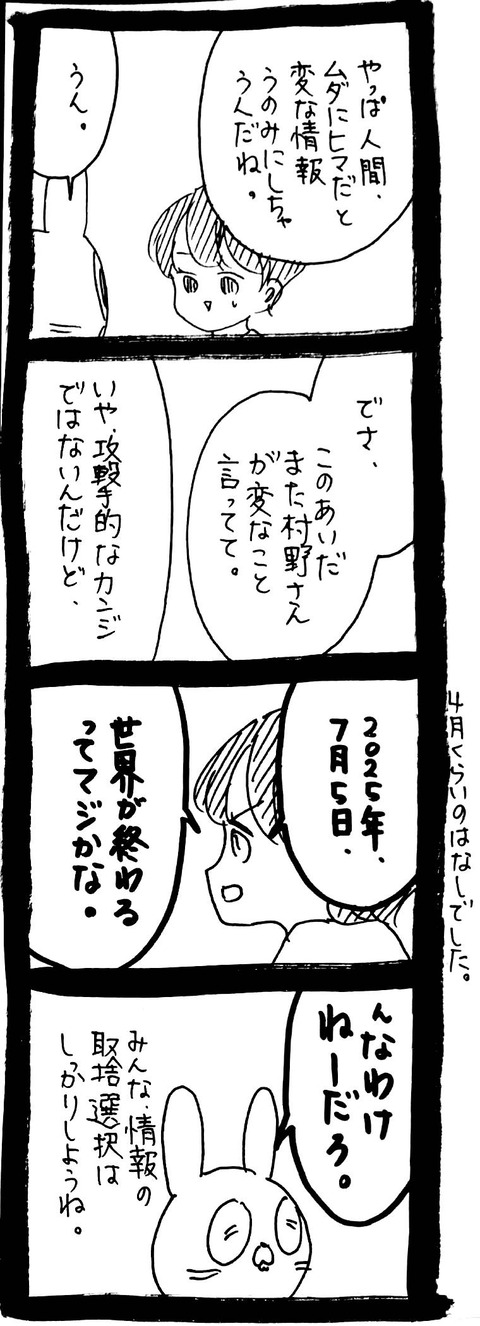 やっぱ人間、
ムダにヒマだと
変な情報
うのみにしちゃ
うんだね。
うん。
でさ、
このあいだ
また村野さん
が変なこと
言ってて。
いや、攻撃的なカンジ
ではないんだけど、
2025年、
7月5日、
世界が終わる
ってマジかな。
んなわけ
ねーだろ。
みんな、情報の
取捨選択は
しっかりしようね。
4月くらいのはなしでした。